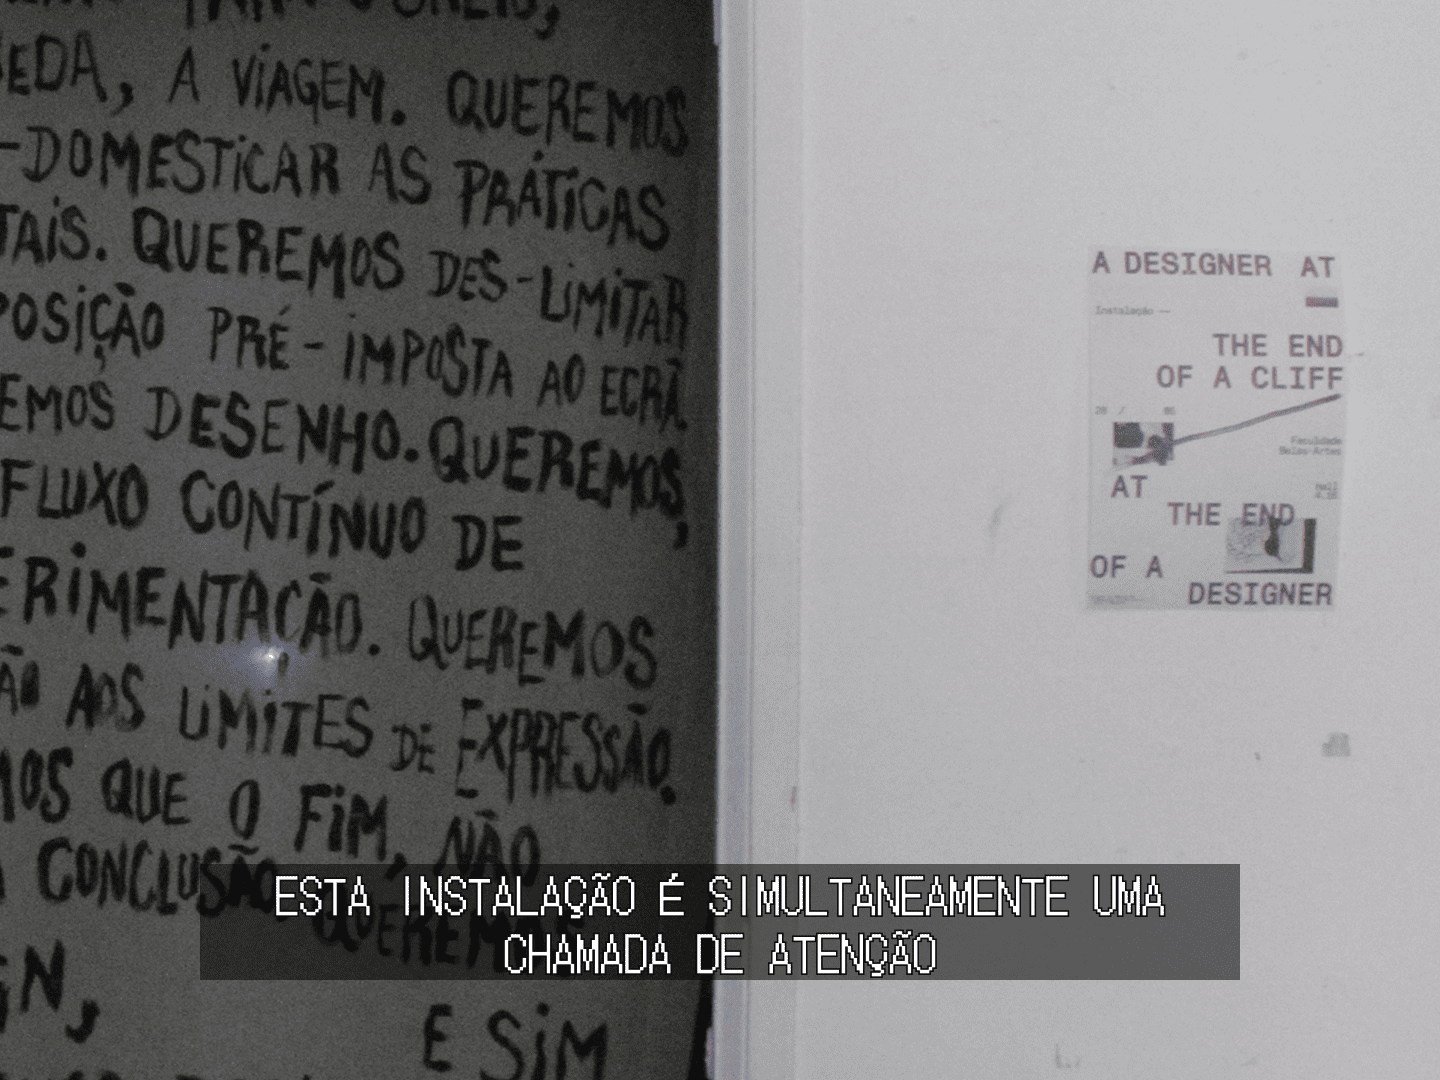 EDA, A VIAGEM. QUEREMOS
-DOMESTICAR AS PRÁTICAS
TAIS. QUEREMOS DES-LIMITAR
POSIÇÃO PRÉ-IMPOSTA AO ECRÃ.
EMOS DESENHO. QUEREMOS,
FLUXO CONTÍNUO DE
ERIMENTAÇÃO. QUEREMOS
ÃO AOS LIMITES DE EXPRESSÃO.
MOS QUE O FIM, NÃO
A CONCLUSÃO QUEREMOS
GN,
E SIM
A DESIGNER AT
Instalação —
THE END
OF A CLIFF
Faculdade
Belas-Artes
AT
THE END
OF A
DESIGNER
ESTA INSTALAÇÃO É SIMULTANEAMENTE UMA
CHAMADA DE ATENÇÃO